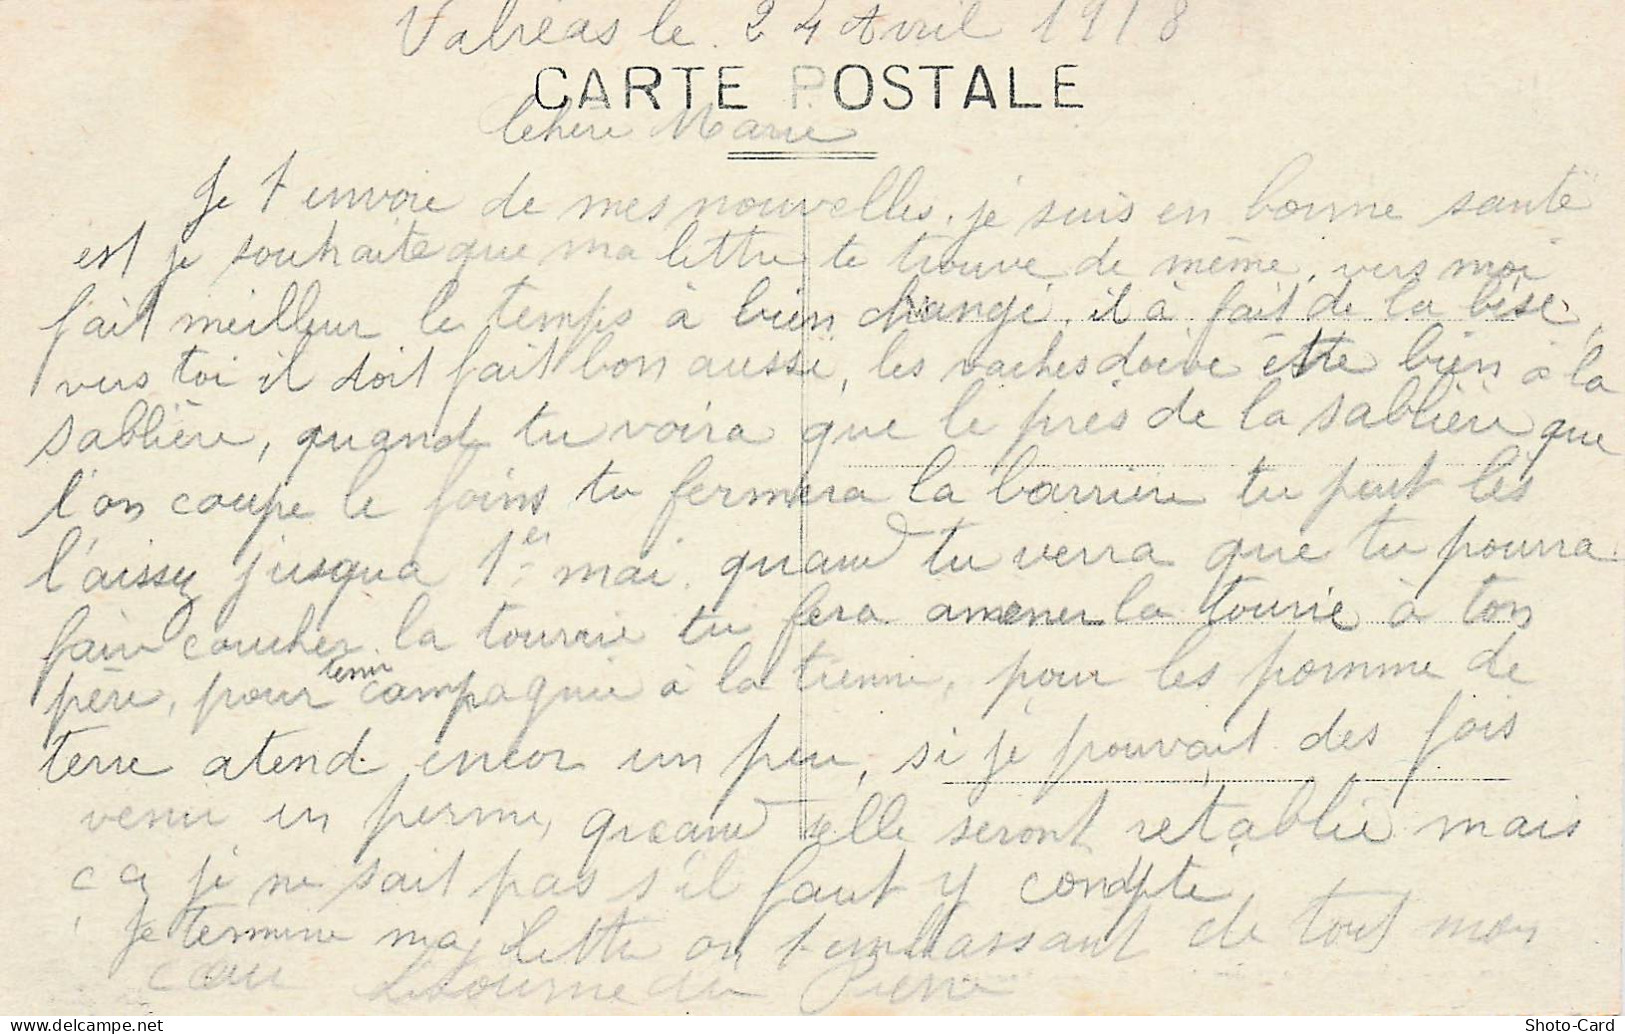 Valréas le 24 Avril 1918
CARTE POSTALE
Chère Marie
Je t envoie de mes nouvelles. je suis en bonne santé
est je souhaite que ma lettre te trouve de même, vers moi
fait meilleur le temps à bien changé. il à fait de la bise,
vers toi il doit fait bon aussi, les vaches doive être bien à la
sablière, quand tu voira que le près de la sablière que
l'on coupe le foins tu fermera la barrière tu peut les
l'aissez jusqua 1er mai. quand tu verra que tu pourra
faire coucher la tourrie tu fera amener la tourie à ton
père, pour tenir campagnie à la tienne, pour les pomme de
terre atend encor un peu, si je pouvait des fois
venir en perme, quand elle seront retablie mais
ça je ne sait pas s'il faut y compte
Je termine ma lettre on t embrassant de tout mon
cœur Pierre
Shoto-Card